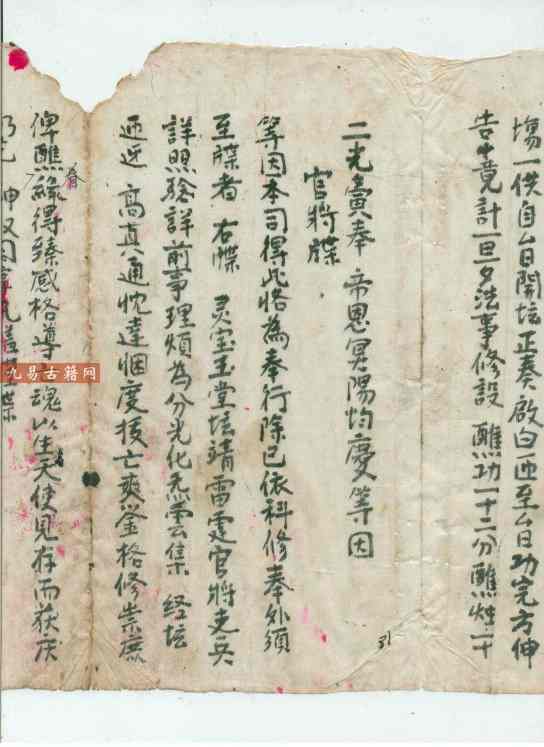 塲一供自㕔日開坛正奏啟白迊至㕔日功完方伸
告竟計一旦夕法事修設 醮功一十二分醮灶二十
二光賫奉 帝恩冥陽均慶等因
官将牒
等因本司得此恪為奉行除已依科修奉外須
至牒者 右牒 灵宝玉堂坛靖雷霆官将吏兵
詳照騐詳前事理煩為分光化炁雲集 经坛
迊迓 高真通忱達悃度拔亡爽登格修崇庶
俾醮緣得臻感格導 魂以生天使見存而获庆
牒
九易古籍网
31